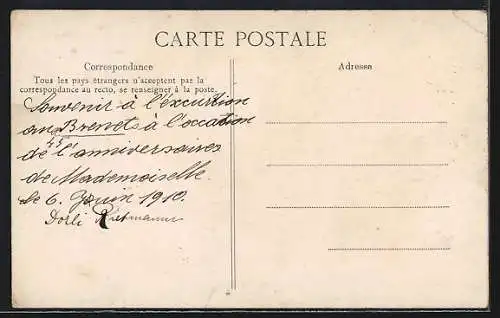 CARTE POSTALE
Correspondance
Tous les pays étrangers n'acceptent pas la
correspondance au recto, se renseigner à la poste.
Adresse
Souvenir à l'excurtion
au Brenets à l'occation
de l'anniversaires
de Mademoiselle
le 6. Juin 1910.
Dorli